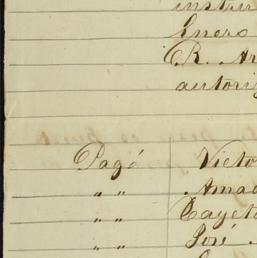 instru
Enero
R. Ar
autori
Pagó Victo
" " Amad
" " Cayet
" " José